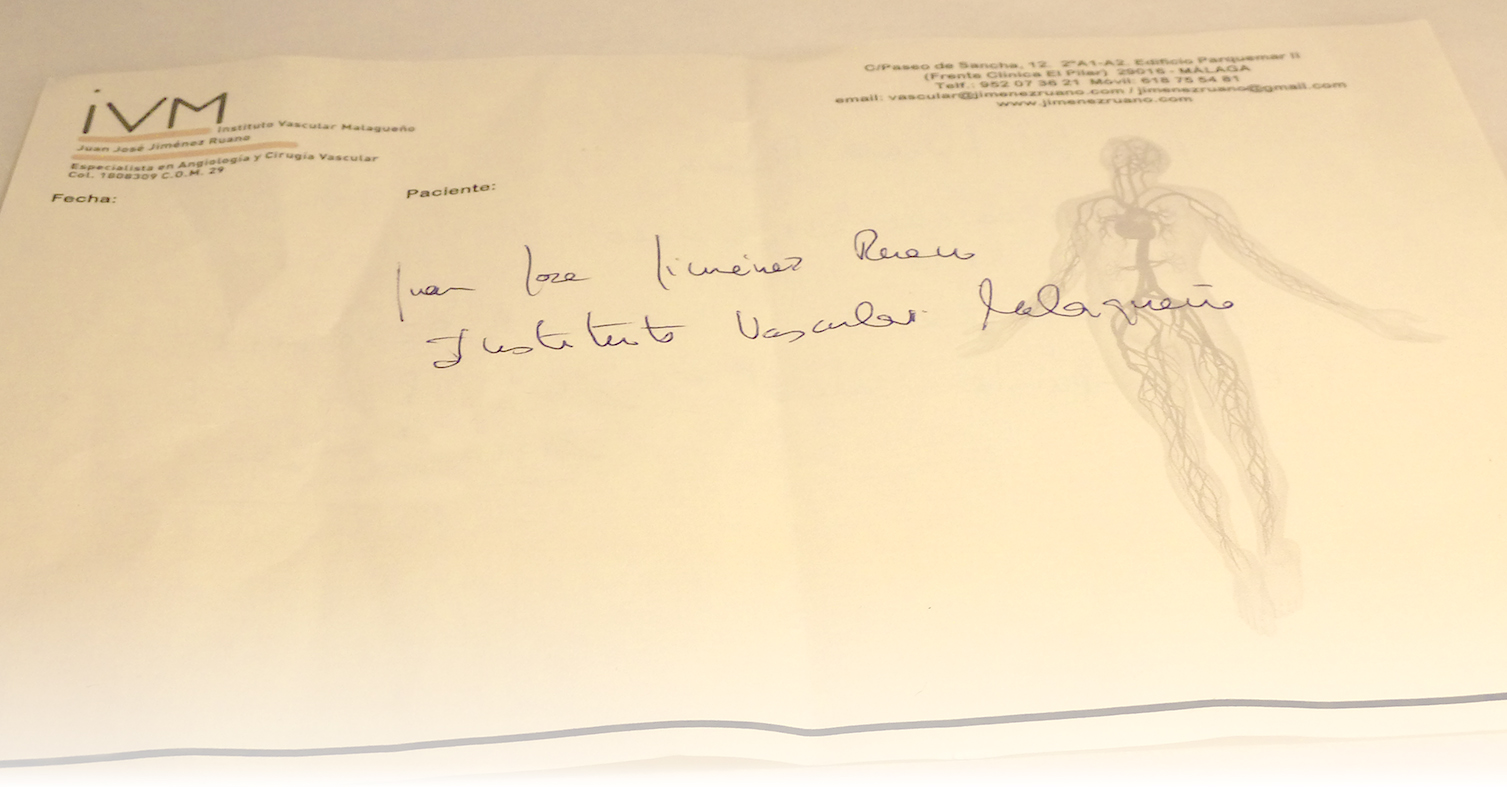 iVM Instituto Vascular Malagueño
Juan José Jiménez Ruano
Especialista en Angiología y Cirugía Vascular
Col. 1808309 C.O.M. 29
C/Paseo de Sancha, 12. 2ºA1-A2. Edificio Parquemar II
(Frente Clínica El Pilar) 29016 - MÁLAGA
Telf.: 952 07 36 21 Móvil: 618 75 54 81
email: vascular@jimenezruano.com / jimenezruano@gmail.com
www.jimenezruano.com
Fecha:
Paciente:
Juan Jose Jiménez Ruano
Instituto Vascular Malagueño